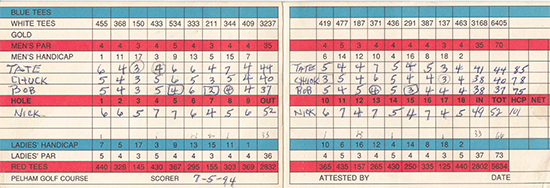 BLUE TEES
WHITE TEES 455 368 150 433 534 333 211 344 409 3237
GOLD
MEN'S PAR 4 4 3 4 5 4 3 4 4 35
MEN'S HANDICAP 1 11 17 3 9 13 5 15 7
TATE 6 4 3 4 6 6 4 7 4 44
CHUCK 5 4 3 5 6 5 3 5 4 40
BOB 5 4 3 5 4 6 2 4 4 37
HOLE 1 2 3 4 5 6 7 8 9 OUT
NICK 6 6 5 7 7 6 4 5 6 52
LADIES' HANDICAP 7 5 17 3 9 13 15 11 1
LADIES' PAR 5 4 3 4 5 4 3 4 4 36
RED TEES 440 328 145 430 367 295 155 303 369 2832
PELHAM GOLF COURSE SCORER 7-5-94
419 477 187 371 436 291 387 137 463 3168 6405
4 5 3 4 4 4 4 3 4 35 70
6 14 12 10 4 16 8 18 2
TATE 5 4 4 7 5 4 5 3 4 41 44 85
CHUCK 3 5 4 6 5 4 4 3 4 38 40 78
BOB 5 4 5 4 5 3 4 4 4 38 37 75
10 11 12 13 14 15 16 17 18 IN TOT HCP NET
NICK 6 7 4 7 5 4 7 4 5 49 52 101
16 12 10 6 14 4 8 18 2
365 435 157 265 430 250 335 120 445 2802 5634
ATTESTED BY DATE